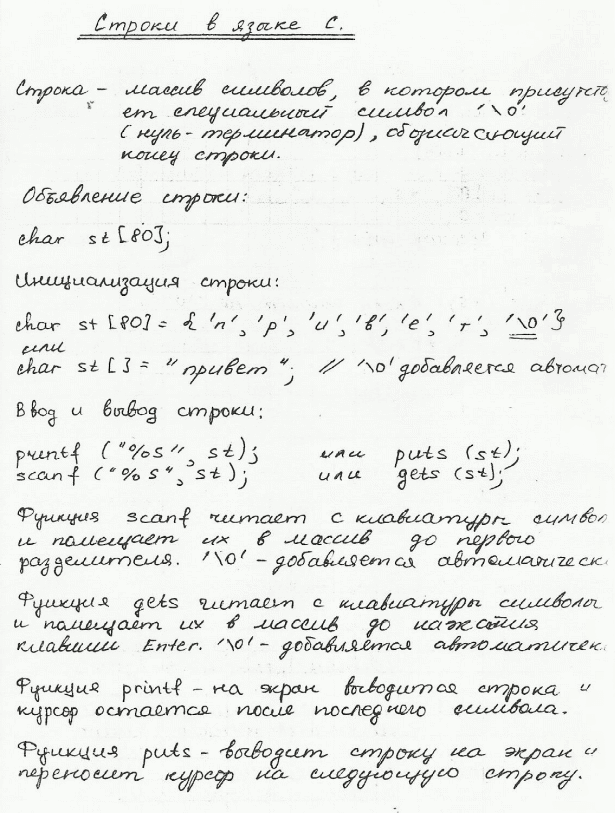 Строки в языке С.
Строка - массив символов, в котором присутств
ет специальный символ '\0'
(нуль-терминатор), обозначающий
конец строки.
Объявление строки:
char st[80];
Инициализация строки:
char st[80] = {'п', 'р', 'и', 'в', 'е', 'т', '\0'}
или
char st[] = "привет"; // '\0' добавляется автомат
Ввод и вывод строки:
printf ("%s", st); или puts (st);
scanf ("%s", st); или gets (st);
Функция scanf читает с клавиатуры символ
и помещает их в массив до первого
разделителя. '\0' - добавляется автоматическ
Функция gets читает с клавиатуры символы
и помещает их в массив до нажатия
клавиши Enter. '\0' - добавляется автоматичек
Функция printf - на экран выводится строка и
курсор остается после последнего символа.
Функция puts - выводит строку на экран и
переносит курсор на следующую строку.